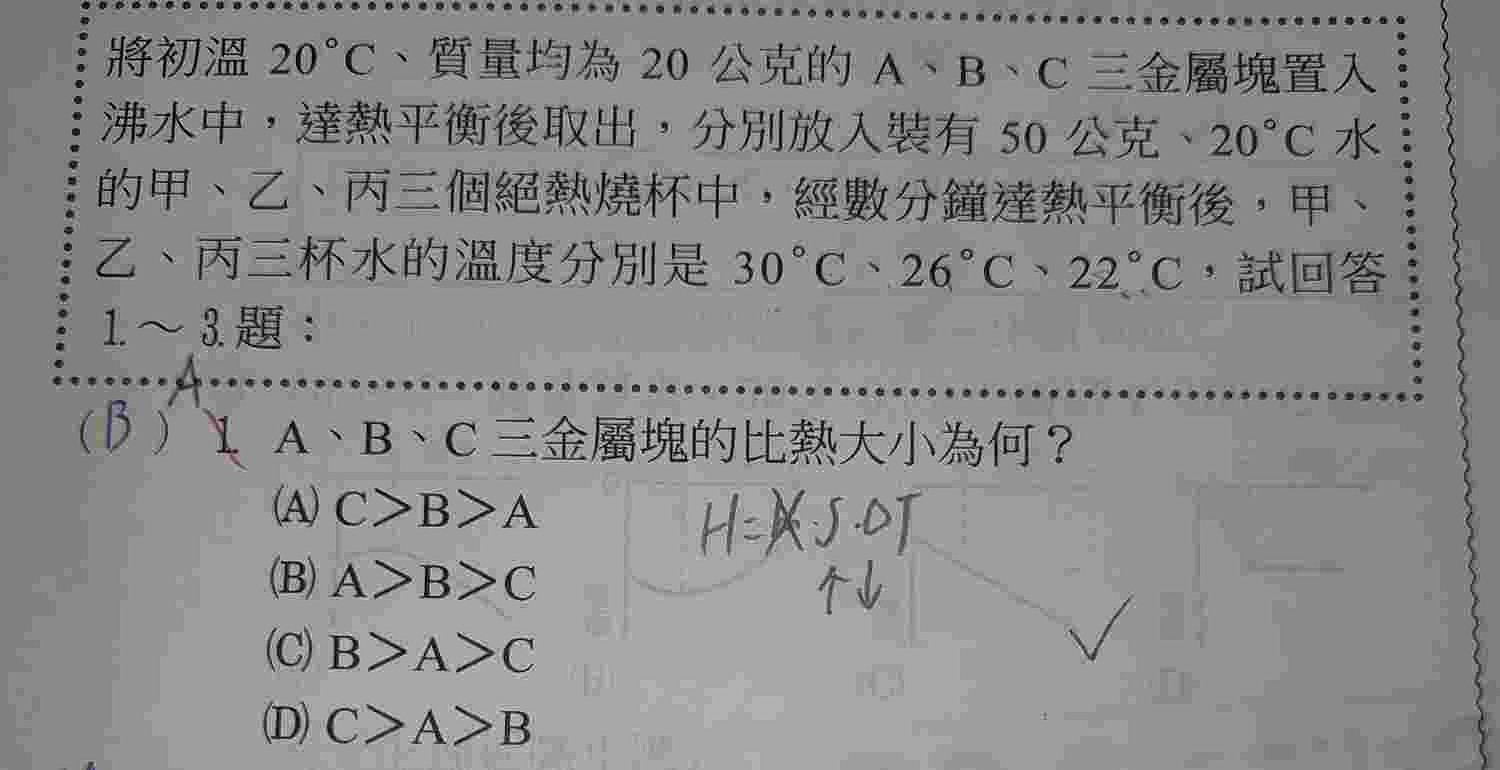 將初溫 20°C、質量均為 20 公克的 A、B、C 三金屬塊置入
沸水中，達熱平衡後取出，分別放入裝有 50 公克、20°C 水
的甲、乙、丙三個絕熱燒杯中，經數分鐘達熱平衡後，甲、
乙、丙三杯水的溫度分別是 30°C、26°C、22°C，試回答
1.～3.題：
A
(B) 1. A、B、C 三金屬塊的比熱大小為何？
(A) C＞B＞A
H=M·S·ΔT
(B) A＞B＞C
↑↓
(C) B＞A＞C
(D) C＞A＞B